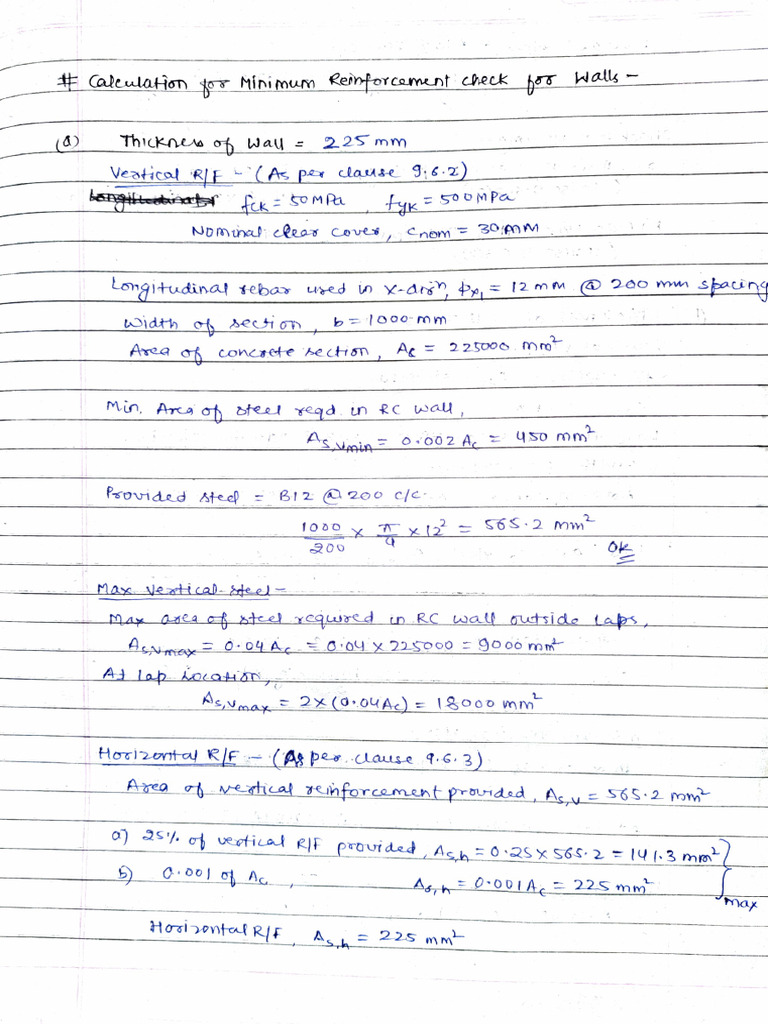 # Calculation for Minimum Reinforcement check for Walls -
(a) Thickness of Wall = 225 mm
Vertical R/F - (As per clause 9.6.2)
fck = 50 MPa, fyk = 500 MPa
Nominal clear cover, cnom = 30 mm
Longitudinal rebar used in x-dirn, ϕx1 = 12 mm @ 200 mm spacing
Width of section, b = 1000 mm
Area of concrete section, Ac = 225000 mm²
Min. Area of steel reqd in RC wall,
As,vmin = 0.002 Ac = 450 mm²
Provided steel = B12 @ 200 c/c.
1000/200 × π/4 × 12² = 565.2 mm²
OK
Max vertical steel -
Max area of steel required in RC wall outside laps,
As,vmax = 0.04 Ac = 0.04 × 225000 = 9000 mm²
At lap location,
As,vmax = 2 × (0.04Ac) = 18000 mm²
Horizontal R/F - (As per clause 9.6.3)
Area of vertical reinforcement provided, As,v = 565.2 mm²
a) 25% of vertical R/F provided, As,h = 0.25 × 565.2 = 141.3 mm²
b) 0.001 of Ac, As,h = 0.001Ac = 225 mm² } max
Horizontal R/F, As,h = 225 mm²